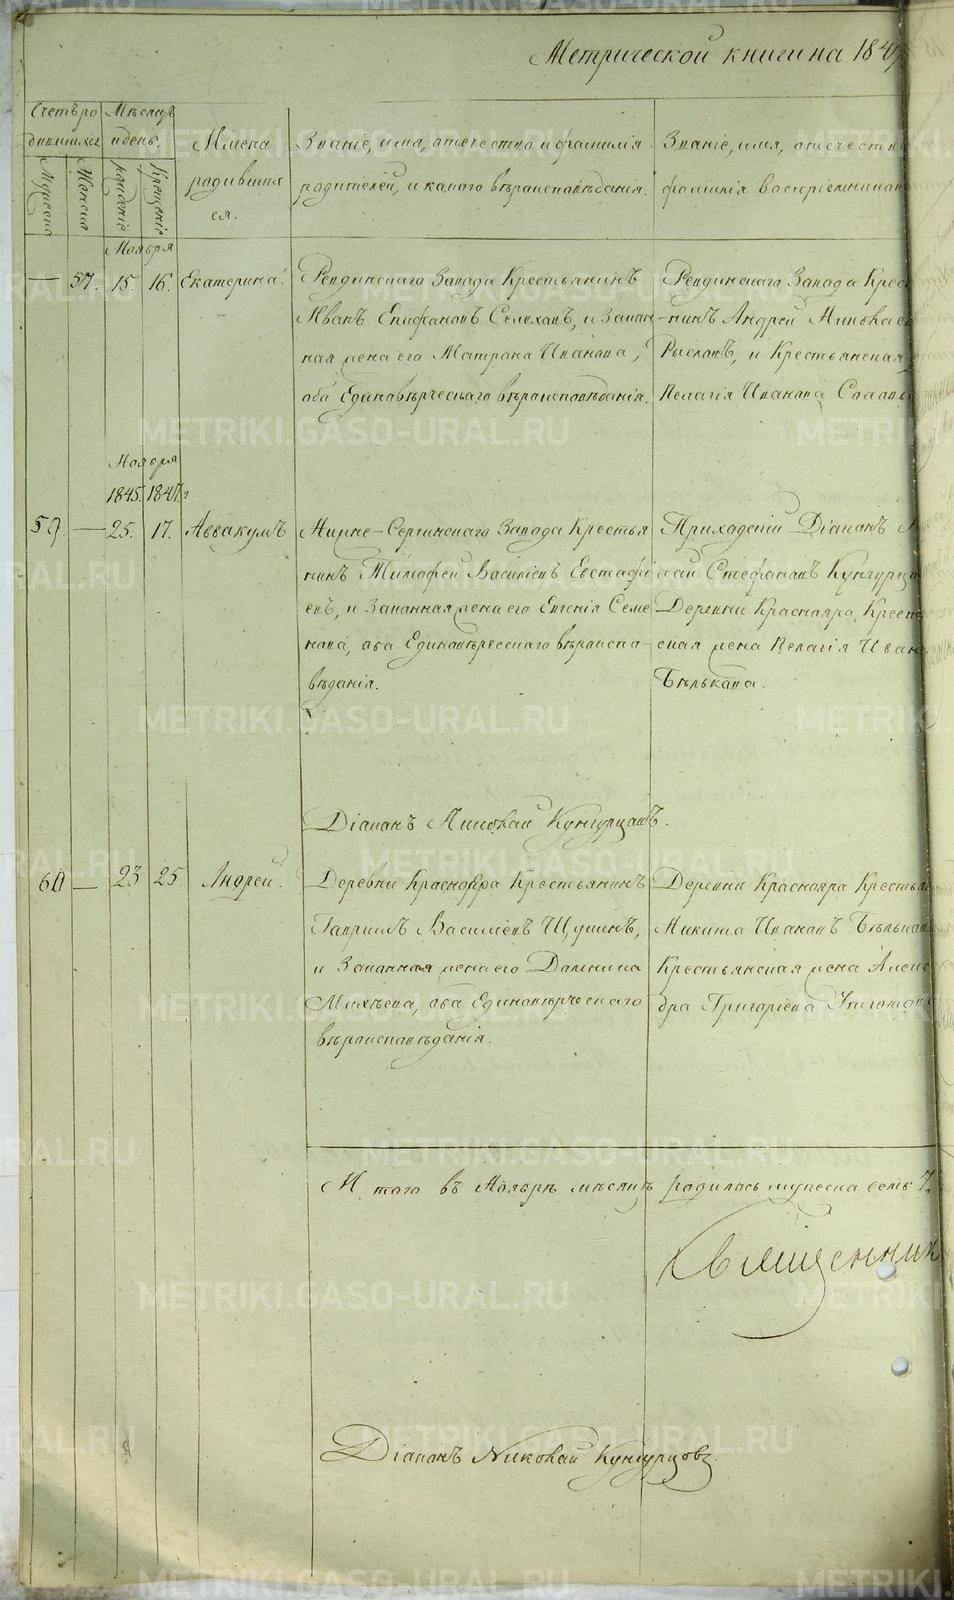 Метрической книги на 184
Счетъ ро
дившихся
Мѣсяцъ
и день.
Мужеска
Женска
Рожденіе
Крещеніе
Имена
родивших
ся.
Званіе, имя, отечество и фамилія
родителей, и какого вѣроисповѣданія.
Званіе, имя, отечество
фамилія воспріемников
Ноября
— 57. 15. 16. Екатерина.
Ревдинскаго Завода Крестьянинъ
Иванъ Епифановъ Селеховъ, и Закон
ная жена его Матрона Иванова,
оба Единовѣрческаго вѣроисповѣданія.
Ревдинскаго Завода Крес
нинъ Андрей
и Крестьянская
Пелагія Иванова
Ноября
1845. 1847.
59. — 25. 17. Аввакумъ
Нижне-Сергинскаго Завода Крестья
нинъ Тимофей Василіевъ Евстафі
евъ, и Законная жена его Евгенія Семе
нова, оба Единовѣрческаго вѣроиспо-
вѣданія.
Приходскій Діаконъ
лай Стефановъ Кунгурцо
Деревни Краснояра Кресть
ская жена Пелагія Иван
Бѣлькова.
Діаконъ Николай Кунгурцовъ.
60 — 23 25 Андрей.
Деревни Краснояра Крестьянинъ
Гавриилъ Василіевъ Щукинъ,
и Законная жена его Домника
Михѣева, оба Единовѣрческаго
вѣроисповѣданія.
Деревни Краснояра Кресть
Никита Ивановъ Бѣльков
Крестьянская жена Алекс
дра Григоріева
И того въ Ноябрѣ мѣсяцѣ родилось мужеска семь 7.
Священник
Діаконъ Николай Кунгурцовъ.
METRIKI.GASO-URAL.RU